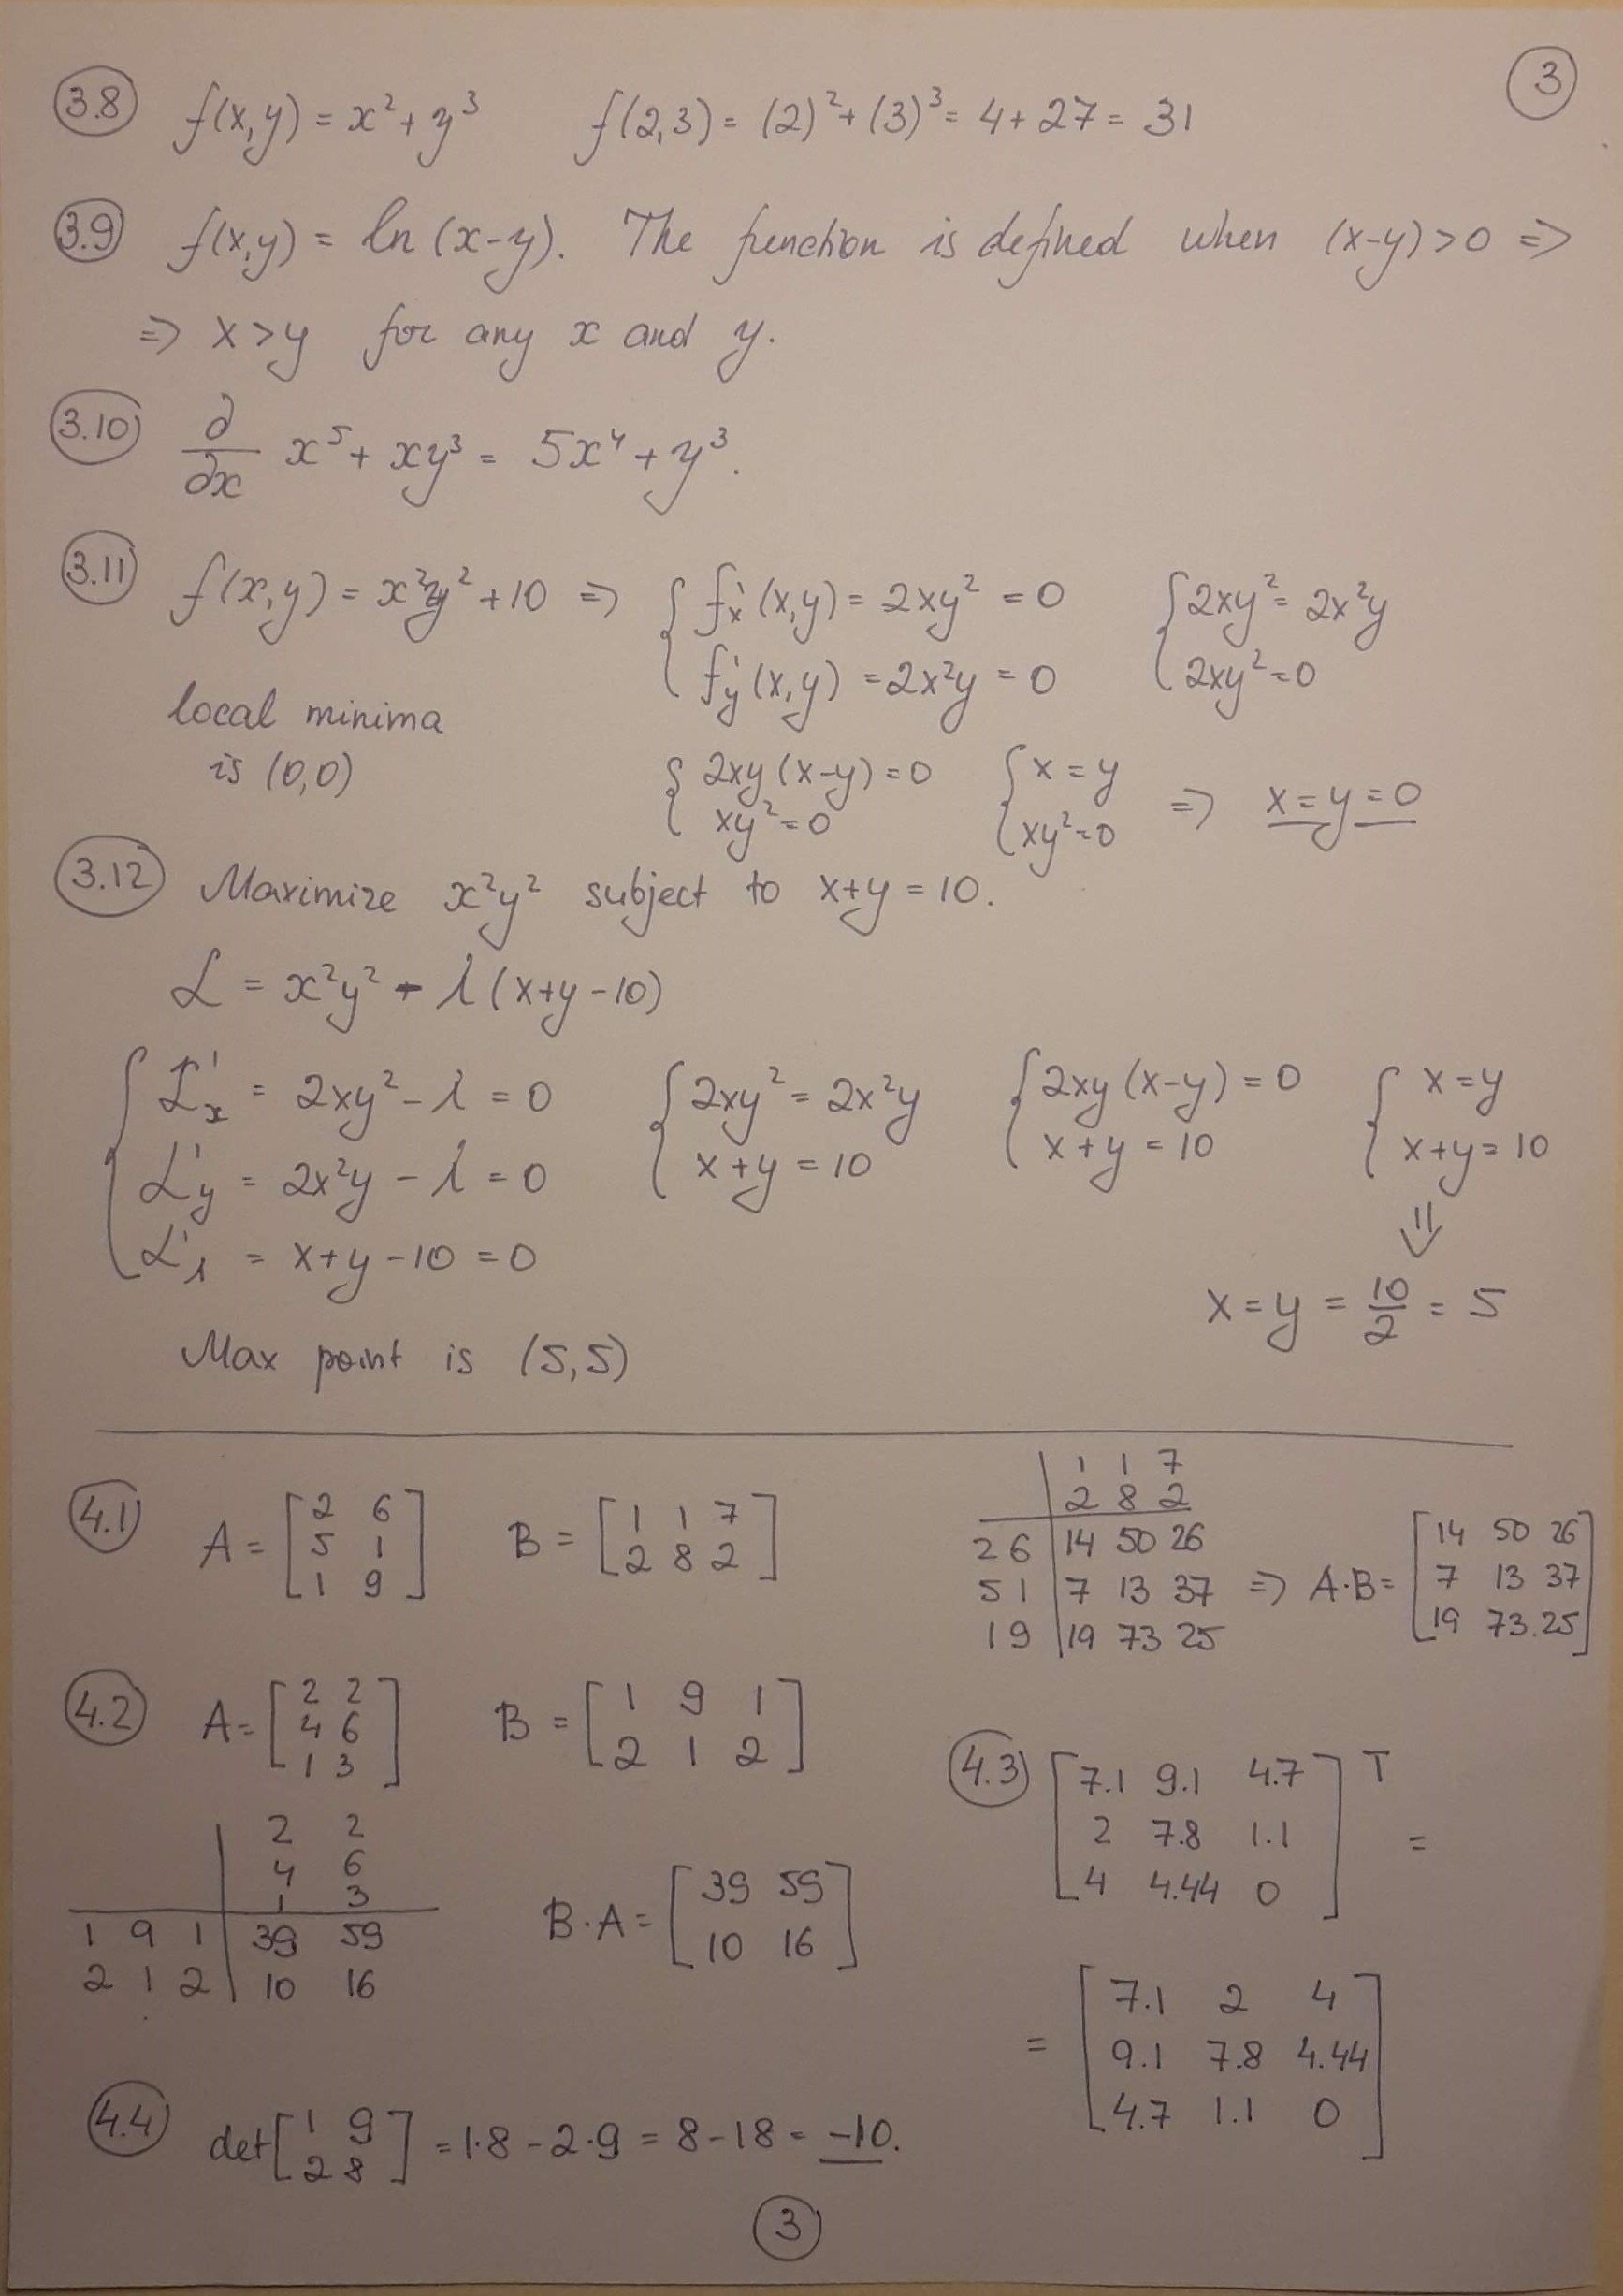 3
3.8 f(x,y) = x² + y³ f(2,3) = (2)² + (3)³ = 4 + 27 = 31
3.9 f(x,y) = ln (x-y). The function is defined when (x-y) > 0 ⇒
⇒ x > y for any x and y.
3.10 ∂/∂x x⁵ + xy³ = 5x⁴ + y³.
3.11 f(x,y) = x²y² + 10 ⇒ { f'x (x,y) = 2xy² = 0 { 2xy² = 2x²y
f'y (x,y) = 2x²y = 0 2xy² = 0
local minima
is (0,0) { 2xy (x-y) = 0 { x = y ⇒ x = y = 0
xy² = 0 xy² = 0
3.12 Maximize x²y² subject to x+y = 10.
L = x²y² - λ (x+y-10)
{ L'x = 2xy² - λ = 0 { 2xy² = 2x²y { 2xy (x-y) = 0 { x = y
L'y = 2x²y - λ = 0 x + y = 10 x + y = 10 x+y = 10
L'λ = x+y-10 = 0 ⇓
x = y = 10/2 = 5
Max point is (5,5)
4.1 A = [2 6 B = [1 1 7
5 1 2 8 2]
1 9]
1 1 7
2 8 2
2 6 14 50 26
5 1 7 13 37 ⇒ A·B = [14 50 26
1 9 19 73 25 7 13 37
19 73.25]
4.2 A = [2 2 B = [1 9 1
4 6 2 1 2]
1 3]
2 2
4 6
1 3
1 9 1 39 59 B·A = [39 59
2 1 2 10 16 10 16]
4.3 [7.1 9.1 4.7
2 7.8 1.1
4 4.44 0] T =
= [7.1 2 4
9.1 7.8 4.44
4.7 1.1 0]
4.4 det [1 9
2 8] = 1·8 - 2·9 = 8 - 18 = -10.
3